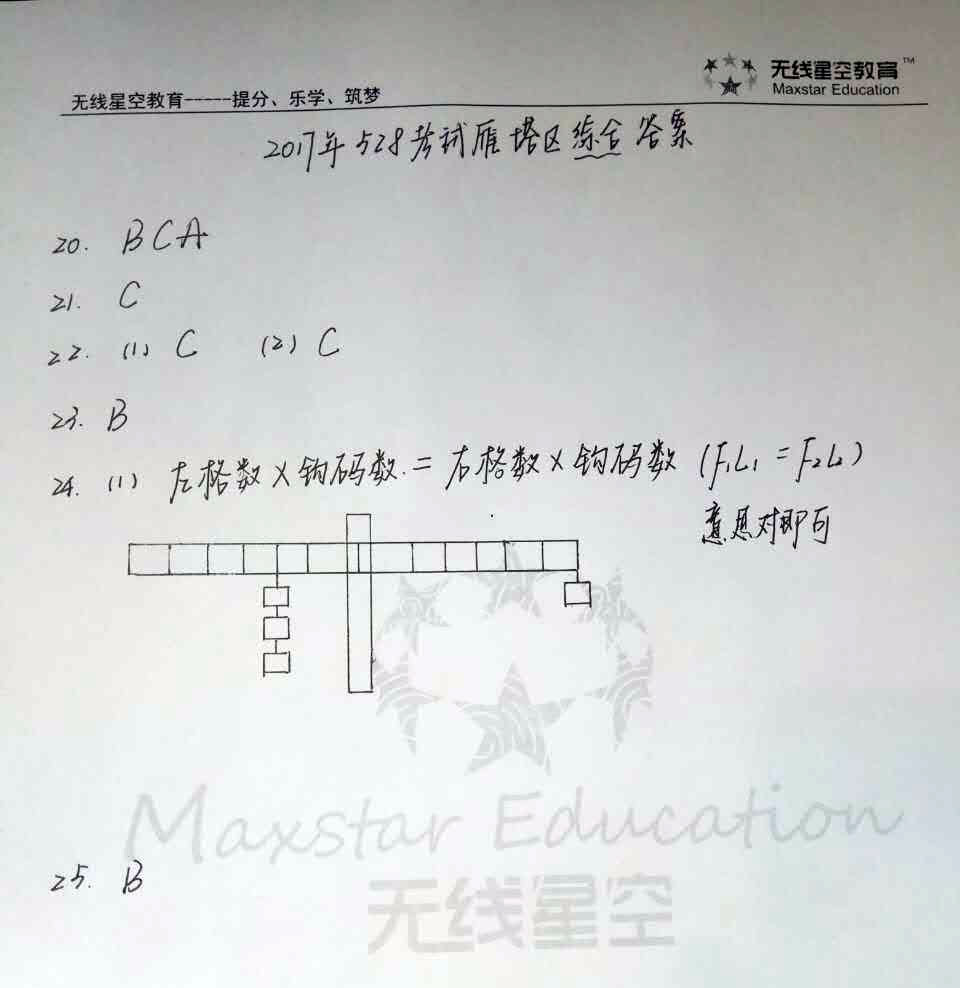 无线星空教育-----提分、乐学、筑梦
无线星空教育™
Maxstar Education
2017年528考试雁塔区综合答案
20. BCA
21. C
22. (1) C (2) C
23. B
24. (1) 左格数×钩码数=右格数×钩码数 (F₁L₁=F₂L₂)
意思对即可
Maxstar Education
25. B
无线星空